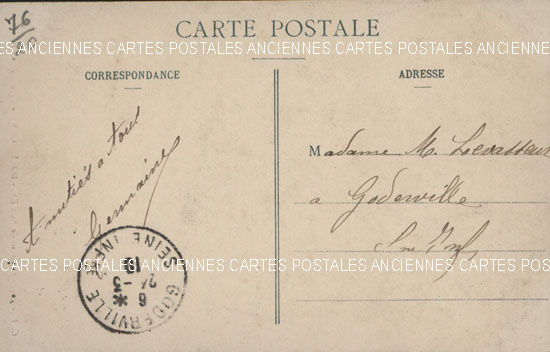 76
CARTE POSTALE
CARTES POSTALES ANCIENNES CARTES POSTALES ANCIENNES CARTES POSTALES ANCIENNES
CORRESPONDANCE
ADRESSE
Amitiés à tous
Germaine
Madame M. Levasseur
à Goderville
Sne Inf
GODERVILLE
SEINE INFRE
6
24 -5
CARTES POSTALES ANCIENNES CARTES POSTALES ANCIENNES CARTES POSTALES ANCIENNES